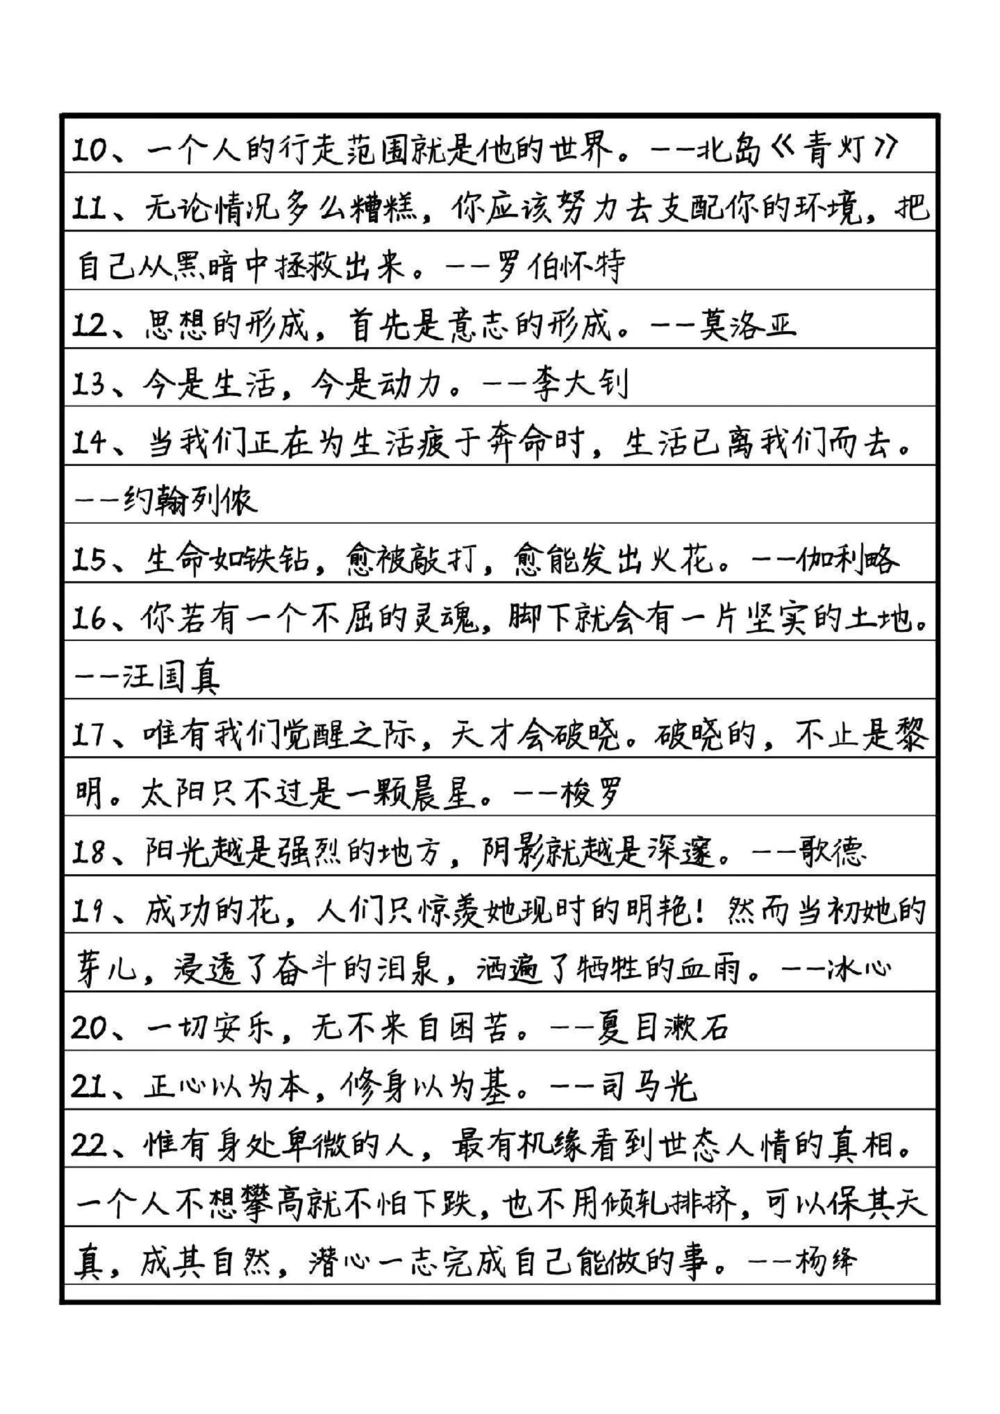 10、一个人的行走范围就是他的世界。--北岛《青灯》
11、无论情况多么糟糕，你应该努力去支配你的环境，把
自己从黑暗中拯救出来。--罗伯怀特
12、思想的形成，首先是意志的形成。--莫洛亚
13、今是生活，今是动力。--李大钊
14、当我们正在为生活疲于奔命时，生活已离我们而去。
--约翰列侬
15、生命如铁钻，愈被敲打，愈能发出火花。--伽利略
16、你若有一个不屈的灵魂，脚下就会有一片坚实的土地。
--汪国真
17、唯有我们觉醒之际，天才会破晓。破晓的，不止是黎
明。太阳只不过是一颗晨星。--梭罗
18、阳光越是强烈的地方，阴影就越是深邃。--歌德
19、成功的花，人们只惊羡她现时的明艳！然而当初她的
芽儿，浸透了奋斗的泪泉，洒遍了牺牲的血雨。--冰心
20、一切安乐，无不来自困苦。--夏目漱石
21、正心以为本，修身以为基。--司马光
22、惟有身处卑微的人，最有机缘看到世态人情的真相。
一个人不想攀高就不怕下跌，也不用倾轧排挤，可以保其天
真，成其自然，潜心一志完成自己能做的事。--杨绛